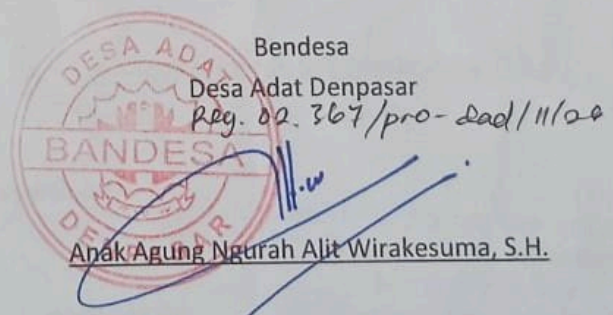 Bendesa
Desa Adat Denpasar
Reg. 02. 367/pro-dad/11/20
DESA ADAT
BANDESA
DENPASAR
Anak Agung Ngurah Alit Wirakesuma, S.H.